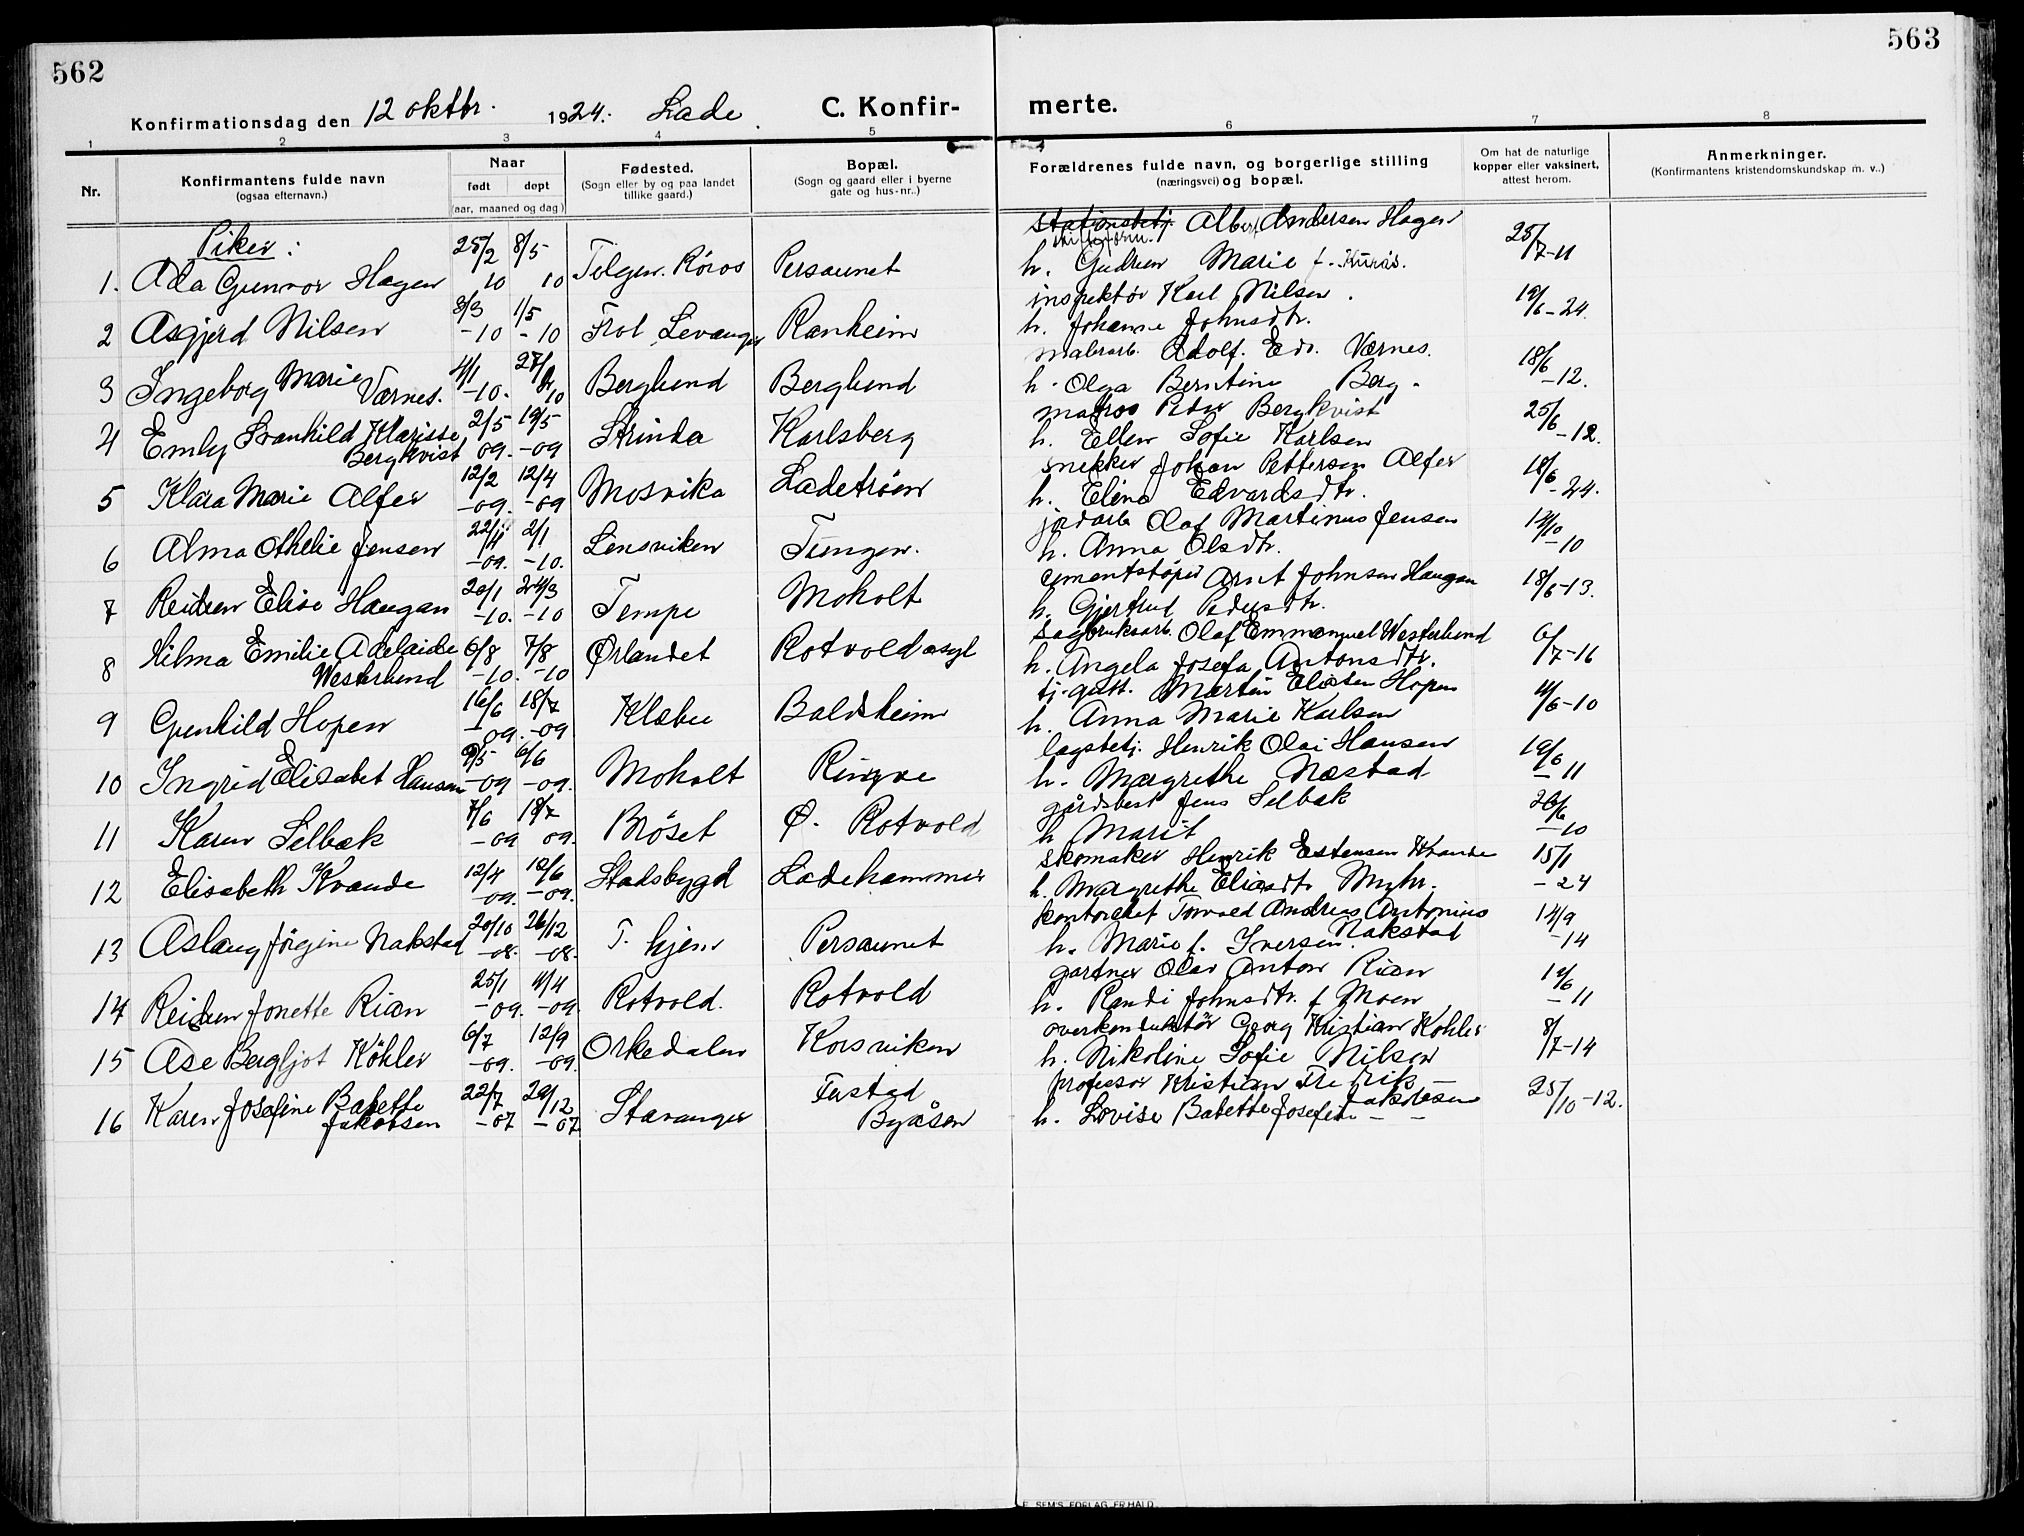 562
563
Konfirmationsdag den 12 oktbr. 1924. Lade. C. Konfir- merte.
1 2 3 4 5 6 7 8
Nr.
Konfirmantens fulde navn
(ogsaa efternavn.)
Naar
født døpt
(aar, maaned og dag)
Fødested.
(Sogn eller by og paa landet
tillike gaard.)
Bopæl.
(Sogn og gaard eller i byerne
gate og hus-nr..)
Forældrenes fulde navn, og borgerlige stilling
(næringsvei) og bopæl.
Om hat de naturlige
kopper eller vaksinert,
attest herom.
Anmerkninger.
(Konfirmantens kristendomskundskap m. v..)
Piker:
stationsbetj. Albert Andersen Hagen
1. Ada Gunvor Hagen 25/2 10 8/5 10 Tolgen. Röros Persaunet h. Gudrun Marie f. Kurås. 25/7-11
inspektör Karl Nilsen.
2 Asgjerd Nilsen 8/3 -10 1/5 -10 Frol Levanger Ranheim h. Johanne Johnsdtr. 19/6-24.
malerarb. Adolf. Edv. Værnes.
3 Ingeborg Marie Værnes. 4/1 -10. 27/3 10 Berglund Berglund h. Olga Berntine Berg. 18/6-12.
matros Peder Bergkvist
4 Emly Svanhild Klarisse Bergkvist 2/5 09. 19/5 -09 Strinda Karlsberg h. Ellen Sofie Karlsen 25/6-12.
snekker Johan Pettersen Alfer
5 Klara Marie Alfer 12/2 -09. 12/4 -09 Mosvika Ladetröen h. Eline Edvardsdtr. 18/6-24.
jordarb Olaf Martinus Jensen
6 Alma Othelie Jensen 22/11 -09. 2/1 -10. Lensviken Tungen. h. Anna Olsdtr. 12/10-10
cementstöper Arnt Johnsen Haugan
7 Reidun Elise Haugan 20/1 -10. 24/3 -10 Tempe Moholt h. Gjertrud Pedersdtr. 18/6-13.
Sagbruksarb. Olaf Emmanuel Westerlund
8 Hilma Emilie Adelaide Westerlund 6/8 -10. 7/8 -10 Ørlandet Rotvold asyl h. Angela Josefa Antonsdtr. 6/7-16
tj.gutt. Martin Elisten Hopen
9 Gunhild Hopen 16/6 -09. 18/7 -09 Klæbu Baldsheim h. Anna Marie Karlsen 4/6-10
lagsbetj. Henrik Olai Hansen
10 Ingrid Elisabet Hansen 9/5 -09 6/6 -09. Moholt Ringve h. Margrethe Næstad 19/6-11
gårdsbest Jens Selbæk
11 Karen Selbæk 7/6 -09 18/7 09. Bröset Ø. Rotvold h Marit 26/6-10
skomaker Henrik Estensen Kvande
12 Elisabeth Kvande 12/4 -09. 12/6 -09. Stadsbygd Ladehammer h. Margrethe Eliasdtr Myhr. 15/1-24
kontorchef Torvald Andreas Antonius Nakstad
13 Aslaug Jörgine Nakstad 20/10 -08. 26/12 -08. T. hjem Persaunet h. Marie f. Iversen. 14/9-14
gartner Olav Anton Rian
14 Reidun Jonette Rian 25/1 -09. 4/4 -09. Rotvold. Rotvold h. Randi Johnsdtr. f Moen 12/6-11
overkonduktör Georg Kristian Köhler
15 Ase Bergljot Köhler 6/7 -09. 12/9 -09. Orkedalen Korsviken h. Nikoline Sofie Nilsen 8/7-14
professor Kristian Fredrik Jakobsen
16 Karen Josefine Babette Jakobsen 22/7 -07 29/12 -07 Stavanger Tustad Byåsen h. Lovise Babette Josefine - - 25/10-12.
E. SEM'S FORLAG, FR.HALD